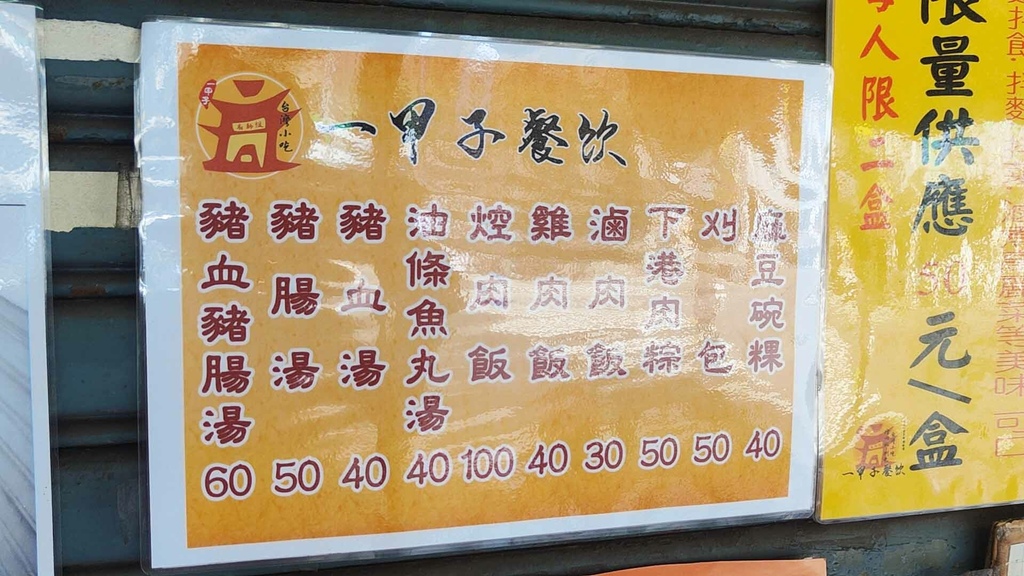 一甲子餐飲
台灣小吃
麻豆碗粿 40
刈包 50
下港肉粽 50
滷肉飯 30
雞肉飯 40
焢肉飯 100
油條魚丸湯 40
豬血湯 40
豬腸湯 50
豬血豬腸湯 60
限量供應 50元/盒
人限二盒
一甲子餐飲
等美味